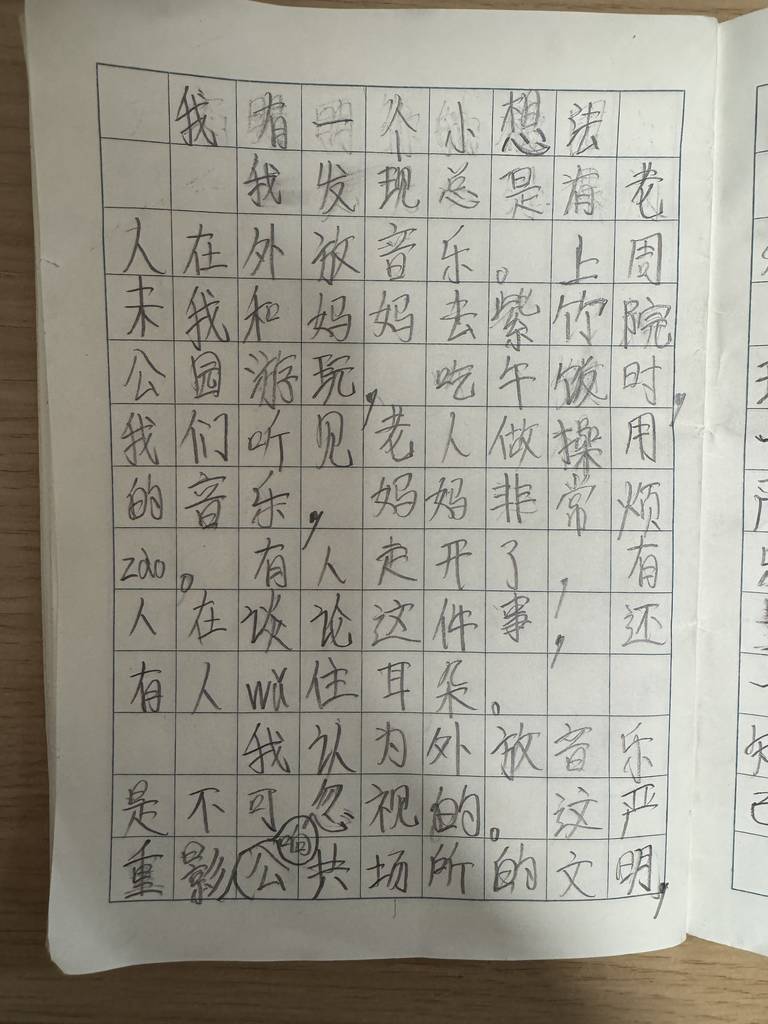 我有一个小想法
我发现总是有老
人在外放音乐。上周
末我和妈妈去紫竹院
公园游玩，吃午饭时，
我们听见老人做操用
的音乐，妈妈非常烦
zao。有人走开了，有
人在谈论这件事，还
有人wu住耳朵。
我认为外放音乐
是不可忽视的。这严
重影响公共场所的文明，